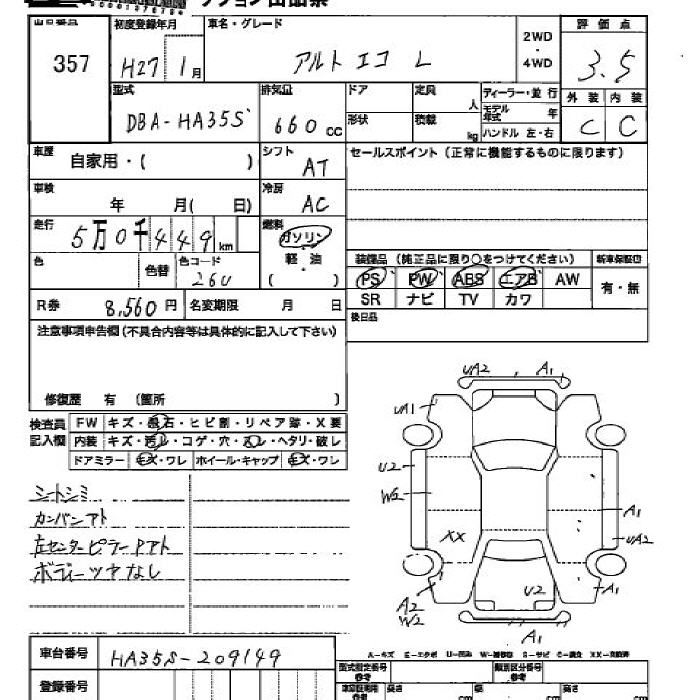 クション出品票
出品番号 357
初度登録年月 H27 1月
車名・グレード アルトエコ L
2WD・4WD
評価点 3.5
外装 C 内装 C
型式 DBA-HA35S
排気量 660 cc
ドア 定員 人
形状 積載 kg
ディーラー・並行
モデル年式 年
ハンドル 左・右
車歴 自家用・( )
シフト AT
セールスポイント(正常に機能するものに限ります)
車検 年 月( 日)
冷房 AC
走行 5万0千449km
燃料 ガソリン
軽・油
( )
色 色替 色コード 26U
装備品(純正品に限り○をつけてください) 新車保証書
PS PW ABS エアB AW 有・無
SR ナビ TV カワ
R券 8,560円 名変期限 月 日
後日品
注意事項申告欄(不具合内容等は具体的に記入して下さい)
修復歴 有 (箇所 )
検査員記入欄
FW キズ・飛石・ヒビ割・リペア跡・X要
内装 キズ・汚レ・コゲ・穴・スレ・ヘタリ・破レ
ドアミラー キズ・ワレ ホイール・キャップ キズ・ワレ
シートシミ
カンバンアト
左センターピラーPアト
ボディーツヤなし
UA2 A1
UA1
U2
W2
A1
UA2
XX
U2
A1
A2
W2
A1
A-キズ E-エクボ U-凹み W-補修跡 S-サビ C-腐食 XX-交換済
車台番号 HA35S-209149
型式指定番号 参考 類別区分番号 参考
登録番号
高さ cm 長さ cm cm